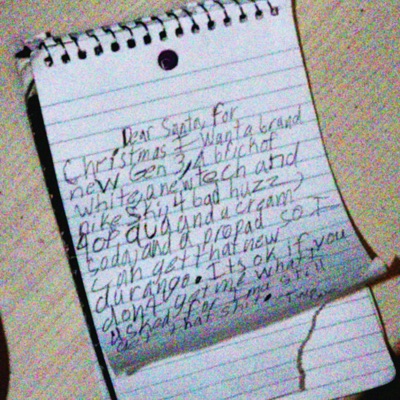 Dear Santa, for
Christmas I want a brand
new Gen 3,4 bric hot
white, a new tech and
nike shi, 4 bad huzz,
40f dug and a cream
soda, and a propad so I
can get that new
durango. It's ok if you
don't get me what I
asked for I ma still
that shit.